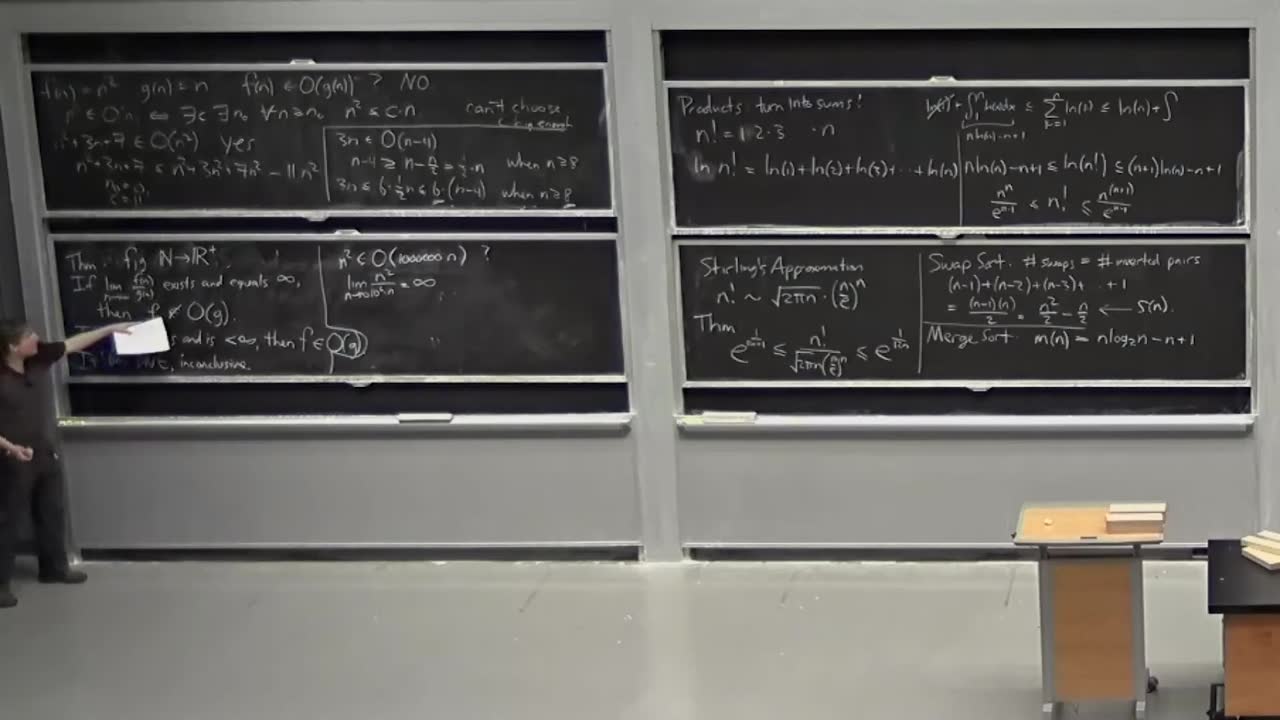 f(n) = n² g(n) = n f(n) ∈ O(g(n)) ? NO
∈ O(n) ⇔ ∃c ∃n₀ ∀n≥n₀ n² ≤ c·n can't choose
c big enough
n²+3n+7 ∈ O(n²) yes
n²+3n+7 ≤ n²+3n²+7n² = 11n²
c=11
3n ∈ O(n-4)
n-4 ≥ n-n/2 = ½·n when n≥8
3n ≤ 6·½n ≤ 6·(n-4) when n≥8
Thm f,g ℕ→ℝ⁺
If lim f(n)/g(n) exists and equals ∞,
then f ∉ O(g).
and is <∞, then f ∈ O(g)
inconclusive.
n² ∈ O(1000000 n) ?
lim n→∞ n²/10⁶·n = ∞
Products turn into sums!
n! = 1·2·3 ·n
ln n! = ln(1)+ln(2)+ln(3)+···+ln(n)
ln(1) + ∫₁ⁿ ln(x)dx ≤ Σ ln(i) ≤ ln(n) + ∫
n ln(n) - n + 1
n ln(n) - n + 1 ≤ ln(n!) ≤ (n+1)ln(n) - n + 1
nⁿ/eⁿ⁻¹ ≤ n! ≤ n⁽ⁿ⁺¹⁾/eⁿ⁻¹
Stirling's Approximation
n! ~ √(2πn) · (n/e)ⁿ
Thm
e^(1/(12n+1)) ≤ n!/(√(2πn)(n/e)ⁿ) ≤ e^(1/12n)
Swap Sort: # swaps = # inverted pairs
(n-1)+(n-2)+(n-3)+ ··+1
= (n-1)(n)/2 = n²/2 - n/2 ← S(n).
Merge Sort: m(n) = n log₂n - n + 1